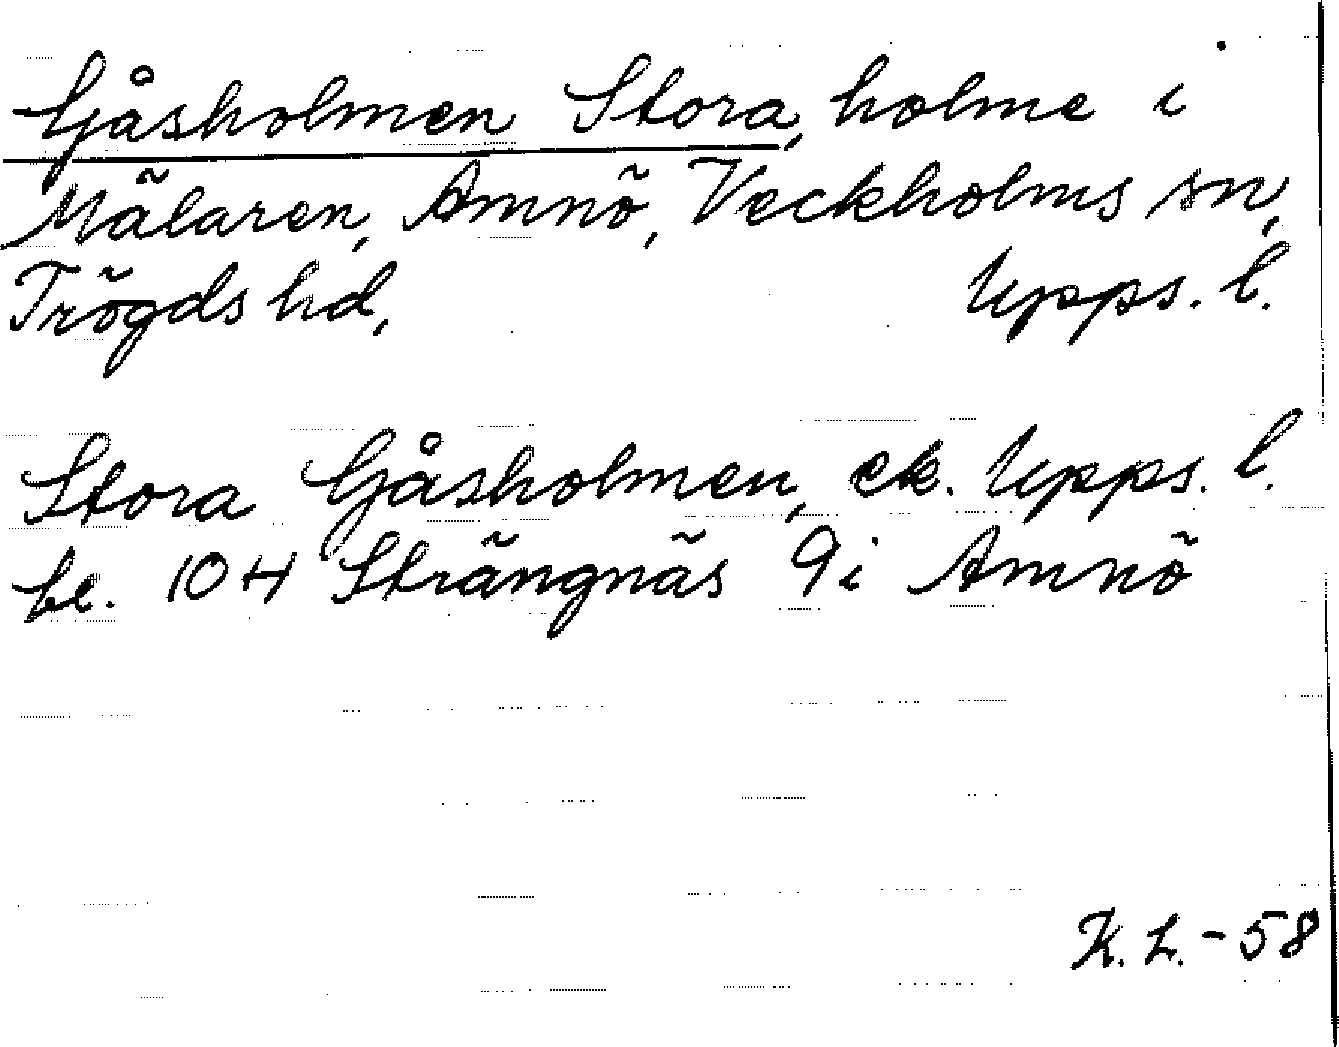 Gåsholmen Stora, holme i
Mälaren, Amnö, Veckholms sn,
Trögds hd, Upps. l.
Stora Gåsholmen, ek. Upps. l.
bl. 104 Strängnäs 9i Amnö
K. L. - 58